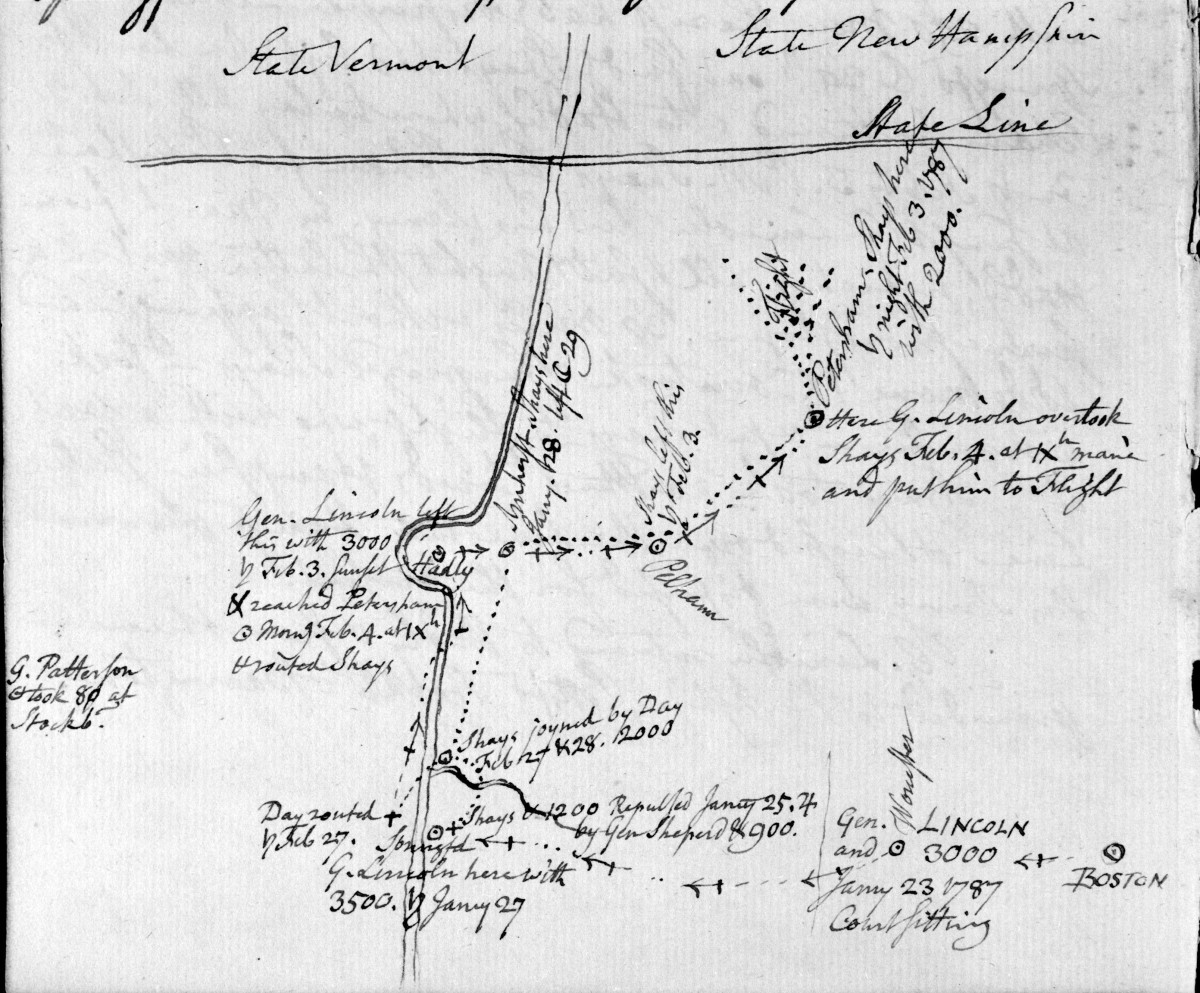 State Vermont
State New Hampshire
State Line
Petersham Shays here
ɧ night Feb 3. 1787
with 2000.
Flight
Here G. Lincoln overtook
Shays Feb. 4. at IXʰ mane
and put him to Flight
Amherst Shays here
Jany. ɧ 28. left ☾ 29
Shays left this
ɧ Feb. 3.
Pelham
Gen. Lincoln left
this with 3000
ɧ Feb. 3. Sunset
& reached Petersham
☉ Morng Feb. 4. at IXʰ
& routed Shays
Hadly
G. Patterson
took 80 at
Stockb.
Shays joyned by Day
Feb 27 & 28. 2000
Day routed
ɧ Feb 27.
Shays & 1200 Repulsed Jany 25. ♃
by Gen Sheperd & 900.
Springfd
G. Lincoln here with
3500. ɧ Jany 27
Worcester
Gen. LINCOLN
and 3000
Jany 23 1787
Court sitting
BOSTON